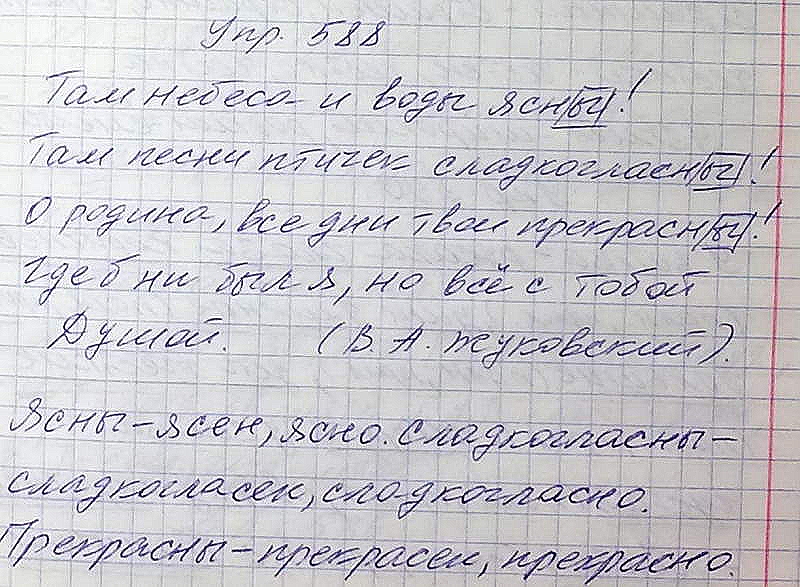 Упр. 588
Там небеса и воды ясны!
Там песни птичек сладкогласны!
О родина, все дни твои прекрасны!
Где б ни был я, но всё с тобой
Душой. (В. А. Жуковский).
Ясны – ясен, ясно. Сладкогласны –
сладкогласен, сладкогласно.
Прекрасны – прекрасен, прекрасно.